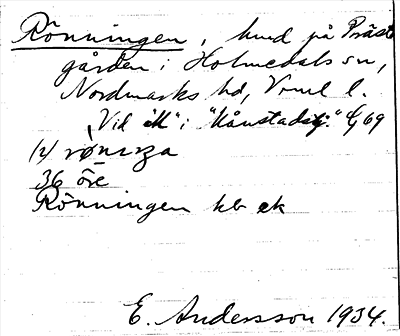 Rönningen, hmd på Präst
gården i Holmedals sn,
Nordmarks hd, Vrml l.
"Vid åk" i "Hånstadsg." Lg 69
(2) rønırza
36 öre
Rönningen kb ek
E. Andersson 1934.